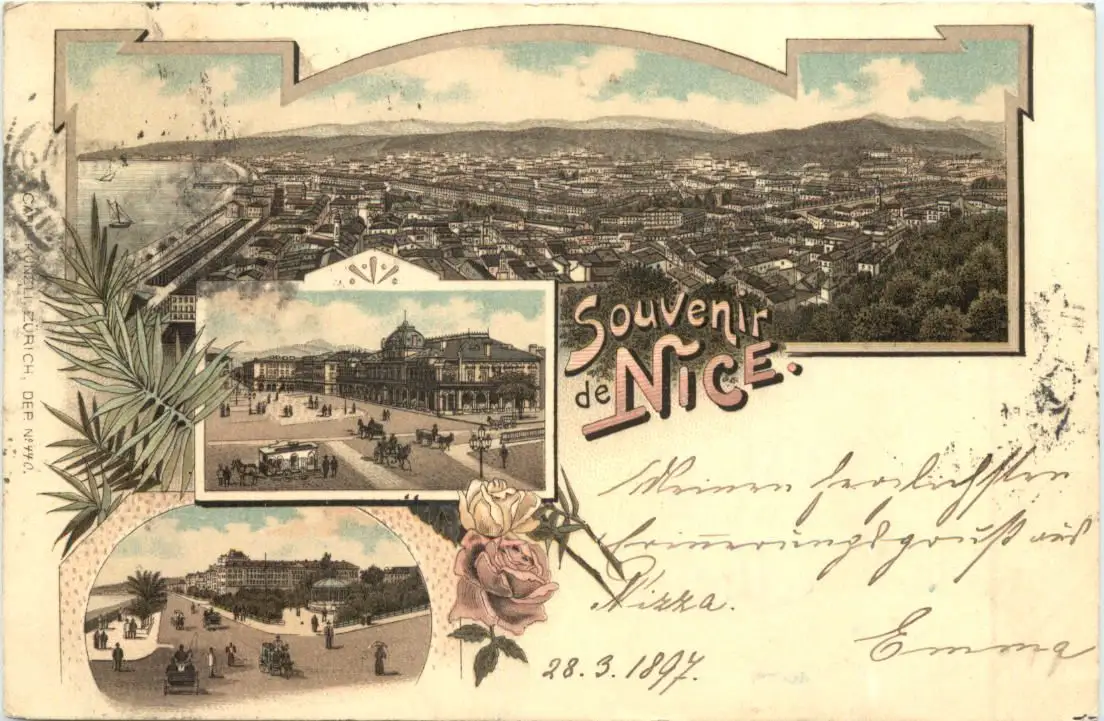 Souvenir
de NICE.
ZÜRICH, DEP. No 440.
Meinen herzlichsten
Erinnerungsgruß aus
Nizza.
Emma
28.3.1897.